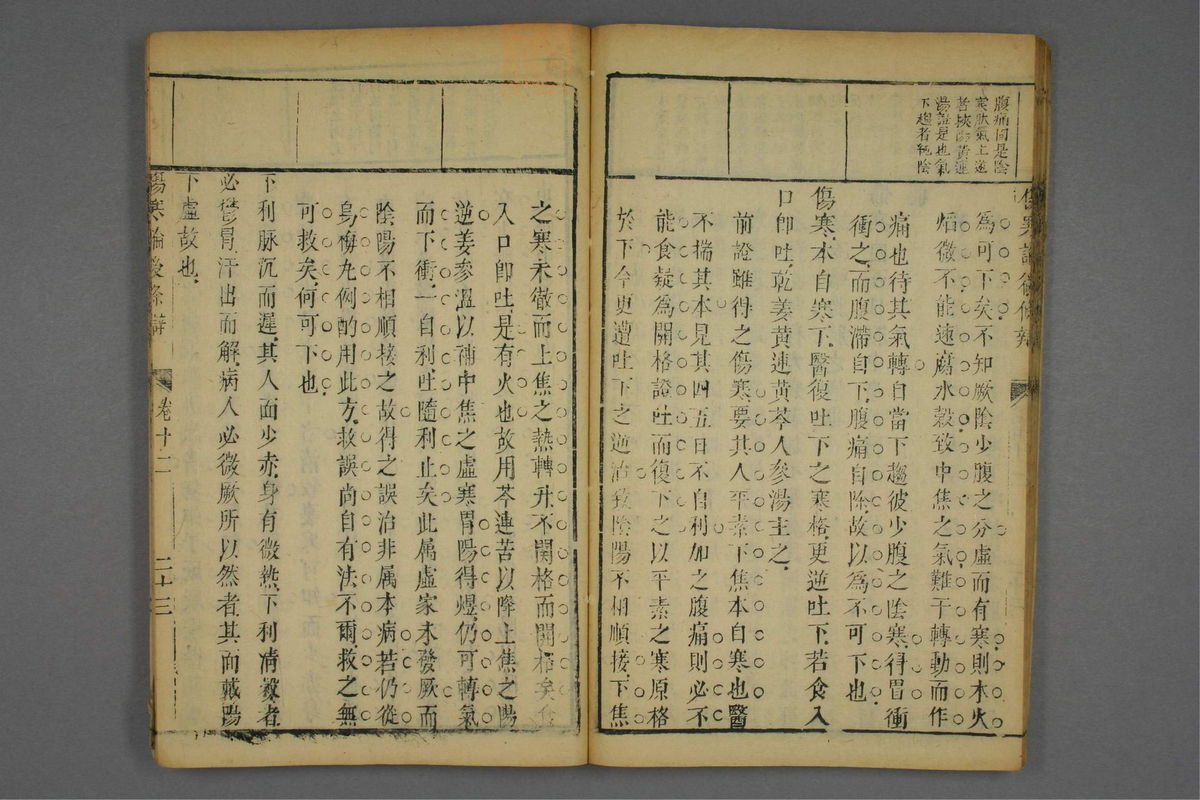 腹痛同是陰
寒肰氣上逆
者挾陽黃連
湯證是也氣
下趨者純陰
傷寒論後條辨
為可下矣不知厥陰少腹之分虛而有寒則本火
熖微不能速腐水穀致中焦之氣難于轉動而作
痛也待其氣轉自當下趨彼少腹之陰寒得胃衝
衝之而腹滯自下腹痛自除故以為不可下也
傷寒本自寒下醫復吐下之寒格更逆吐下若食入
口卽吐乾姜黃連黃芩人參湯主之
前證雖得之傷寒要其人平素下焦本自寒也醫
不揣其本見其四五日不自利加之腹痛則必不
能食疑為關格證吐而復下之以平素之寒原格
於下今更遭吐下之逆治致陰陽不相順接下焦
之寒未徹而上焦之熱轉升不關格而關格矣食
入口卽吐是有火也故用芩連苦以降上焦之陽
逆姜參溫以補中焦之虛寒胃陽得煖仍可轉氣
而下衝一自利吐隨利止矣此属虛家未發厥而
陰陽不相順接之故得之誤治非属本病若仍從
烏梅丸例酌用此方救誤尚自有法不爾救之無
可救矣何可下也
下利脉沉而遲其人面少赤身有微熱下利清穀者
必鬱冒汗出而解病人必微厥所以然者其面戴陽
下虛故也
傷寒論後條辨 卷十二 二十三